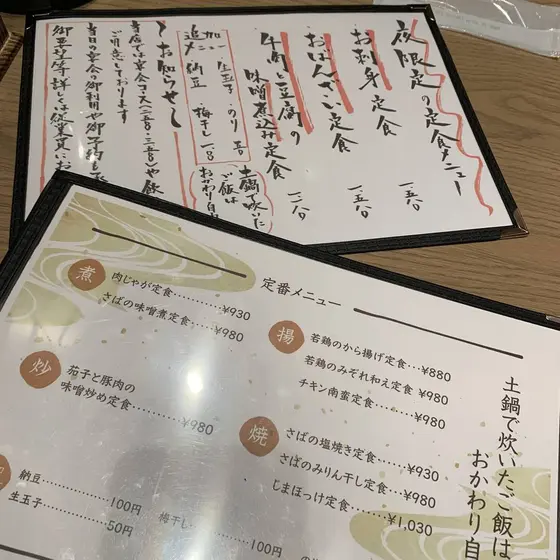 夜限定の定食メニュー
お刺身定食 一、五八〇
おばんざい定食 一、五八〇
牛肉と豆腐の
味噌煮込み定食 一、二八〇
追加メニュー
生玉子・のり 五〇
納豆 梅干し 一〇〇
土鍋で炊いた
ご飯は
おかわり自
お知らせ
当店では宴会コース
ご用意しております
当日の宴会の御利用や御予約も
定番メニュー
煮
肉じゃが定食………¥930
さばの味噌煮定食……¥980
炒
茄子と豚肉の
味噌炒め定食………¥980
揚
若鶏のから揚げ定食…¥880
若鶏のみぞれ和え定食 ¥980
チキン南蛮定食……¥980
焼
さばの塩焼き定食……¥930
さばのみりん干し定食…¥980
じまほっけ定食……¥1,030
納豆………100円
生玉子………50円
梅干し………100円
土鍋で炊いたご飯は
おかわり自